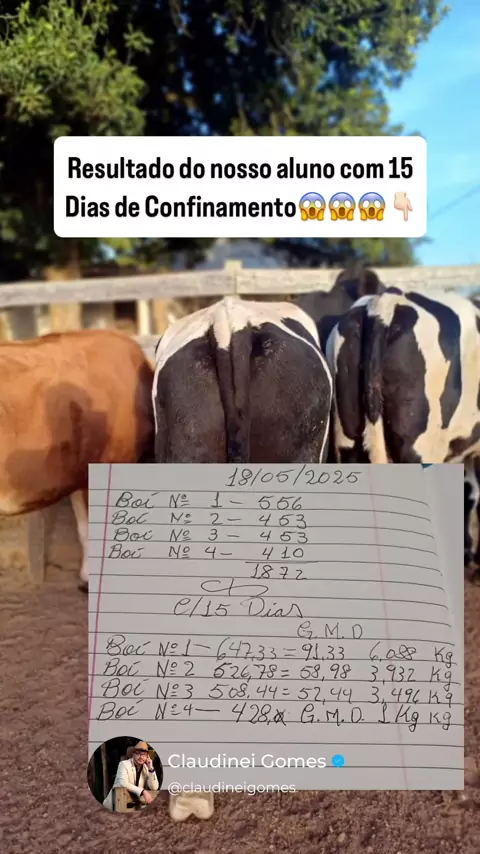 Resultado do nosso aluno com 15
Dias de Confinamento😱😱😱👇🏻
18/05/2025
Boi Nº 1 - 556
Boi Nº 2 - 453
Boi Nº 3 - 453
Boi Nº 4 - 410
1872
C/15 Dias
G.M.D
Boi Nº 1 - 647,33 = 91,33 6,088 Kg
Boi Nº 2 526,78 = 58,98 3,932 Kg
Boi Nº 3 508,44 = 52,44 3,496 Kg
Boi Nº 4 - 428, G.M.D. 1 Kg Kg
Claudinei Gomes
@claudineigomes